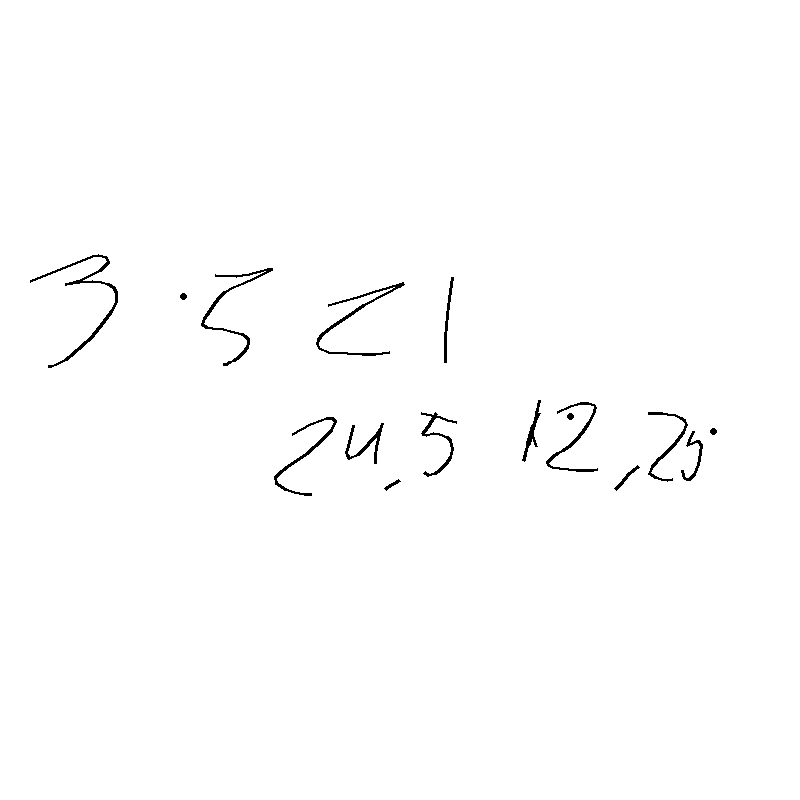 3.5 21
24,5 12,25